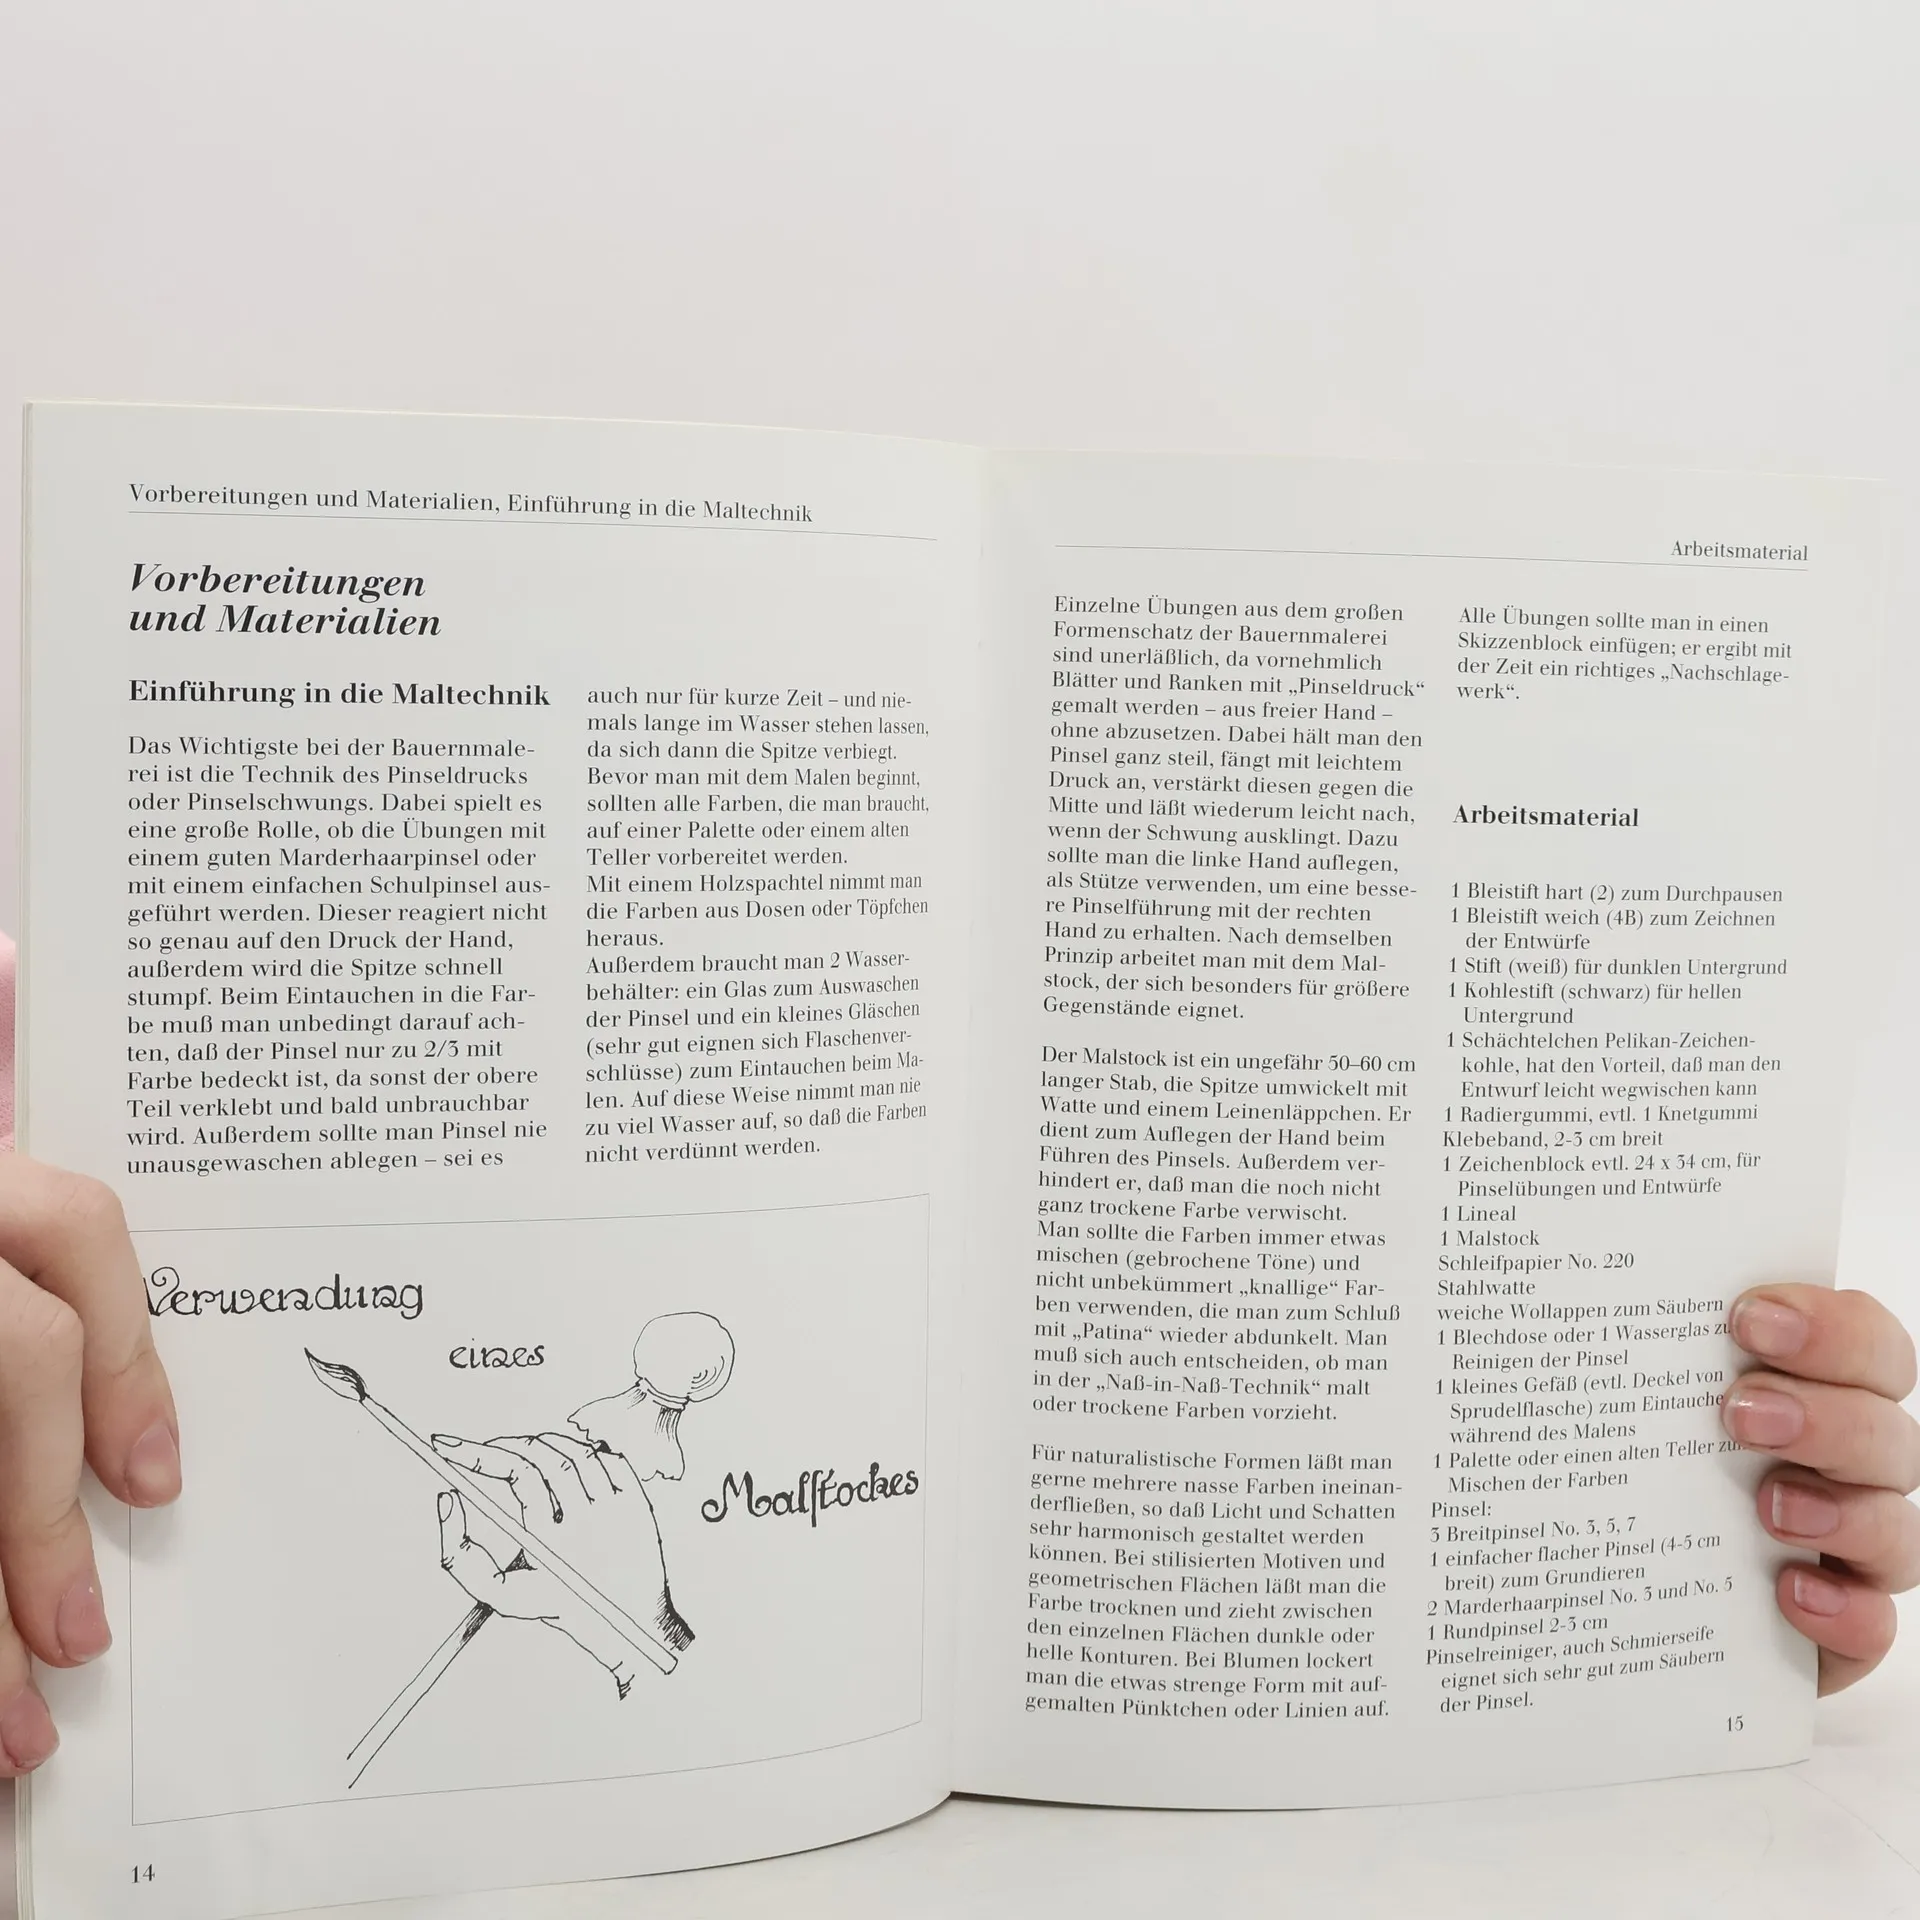 Vorbereitungen und Materialien, Einführung in die Maltechnik
Vorbereitungen
und Materialien
Einführung in die Maltechnik
Das Wichtigste bei der Bauernmale-
rei ist die Technik des Pinseldrucks
oder Pinselschwungs. Dabei spielt es
eine große Rolle, ob die Übungen mit
einem guten Marderhaarpinsel oder
mit einem einfachen Schulpinsel aus-
geführt werden. Dieser reagiert nicht
so genau auf den Druck der Hand,
außerdem wird die Spitze schnell
stumpf. Beim Eintauchen in die Far-
be muß man unbedingt darauf ach-
ten, daß der Pinsel nur zu 2/3 mit
Farbe bedeckt ist, da sonst der obere
Teil verklebt und bald unbrauchbar
wird. Außerdem sollte man Pinsel nie
unausgewaschen ablegen – sei es
auch nur für kurze Zeit – und nie-
mals lange im Wasser stehen lassen,
da sich dann die Spitze verbiegt.
Bevor man mit dem Malen beginnt,
sollten alle Farben, die man braucht,
auf einer Palette oder einem alten
Teller vorbereitet werden.
Mit einem Holzspachtel nimmt man
die Farben aus Dosen oder Töpfchen
heraus.
Außerdem braucht man 2 Wasser-
behälter: ein Glas zum Auswaschen
der Pinsel und ein kleines Gläschen
(sehr gut eignen sich Flaschenver-
schlüsse) zum Eintauchen beim Ma-
len. Auf diese Weise nimmt man nie
zu viel Wasser auf, so daß die Farben
nicht verdünnt werden.
Verwendung
eines
Malstockes
14
Arbeitsmaterial
Einzelne Übungen aus dem großen
Formenschatz der Bauernmalerei
sind unerläßlich, da vornehmlich
Blätter und Ranken mit „Pinseldruck“
gemalt werden – aus freier Hand –
ohne abzusetzen. Dabei hält man den
Pinsel ganz steil, fängt mit leichtem
Druck an, verstärkt diesen gegen die
Mitte und läßt wiederum leicht nach,
wenn der Schwung ausklingt. Dazu
sollte man die linke Hand auflegen,
als Stütze verwenden, um eine besse-
re Pinselführung mit der rechten
Hand zu erhalten. Nach demselben
Prinzip arbeitet man mit dem Mal-
stock, der sich besonders für größere
Gegenstände eignet.
Der Malstock ist ein ungefähr 50–60 cm
langer Stab, die Spitze umwickelt mit
Watte und einem Leinenläppchen. Er
dient zum Auflegen der Hand beim
Führen des Pinsels. Außerdem ver-
hindert er, daß man die noch nicht
ganz trockene Farbe verwischt.
Man sollte die Farben immer etwas
mischen (gebrochene Töne) und
nicht unbekümmert „knallige“ Far-
ben verwenden, die man zum Schluß
mit „Patina“ wieder abdunkelt. Man
muß sich auch entscheiden, ob man
in der „Naß-in-Naß-Technik“ malt
oder trockene Farben vorzieht.
Für naturalistische Formen läßt man
gerne mehrere nasse Farben ineinan-
derfließen, so daß Licht und Schatten
sehr harmonisch gestaltet werden
können. Bei stilisierten Motiven und
geometrischen Flächen läßt man die
Farbe trocknen und zieht zwischen
den einzelnen Flächen dunkle oder
helle Konturen. Bei Blumen lockert
man die etwas strenge Form mit auf-
gemalten Pünktchen oder Linien auf.
Alle Übungen sollte man in einen
Skizzenblock einfügen; er ergibt mit
der Zeit ein richtiges „Nachschlage-
werk“.
Arbeitsmaterial
1 Bleistift hart (2) zum Durchpausen
1 Bleistift weich (4B) zum Zeichnen
der Entwürfe
1 Stift (weiß) für dunklen Untergrund
1 Kohlestift (schwarz) für hellen
Untergrund
1 Schächtelchen Pelikan-Zeichen-
kohle, hat den Vorteil, daß man den
Entwurf leicht wegwischen kann
1 Radiergummi, evtl. 1 Knetgummi
Klebeband, 2-3 cm breit
1 Zeichenblock evtl. 24 x 34 cm, für
Pinselübungen und Entwürfe
1 Lineal
1 Malstock
Schleifpapier No. 220
Stahlwatte
weiche Wollappen zum Säubern
1 Blechdose oder 1 Wasserglas
Reinigen der Pinsel
1 kleines Gefäß (evtl. Deckel von
Sprudelflasche) zum
während des Malens
1 Palette oder einen alten Teller
Mischen der Farben
Pinsel:
3 Breitpinsel No. 3, 5, 7
1 einfacher flacher Pinsel (4-5 cm
breit) zum Grundieren
2 Marderhaarpinsel No. 3 und No. 5
1 Rundpinsel 2-3 cm
Pinselreiniger, auch Schmierseife
eignet sich sehr gut zum Säubern
der Pinsel.
15